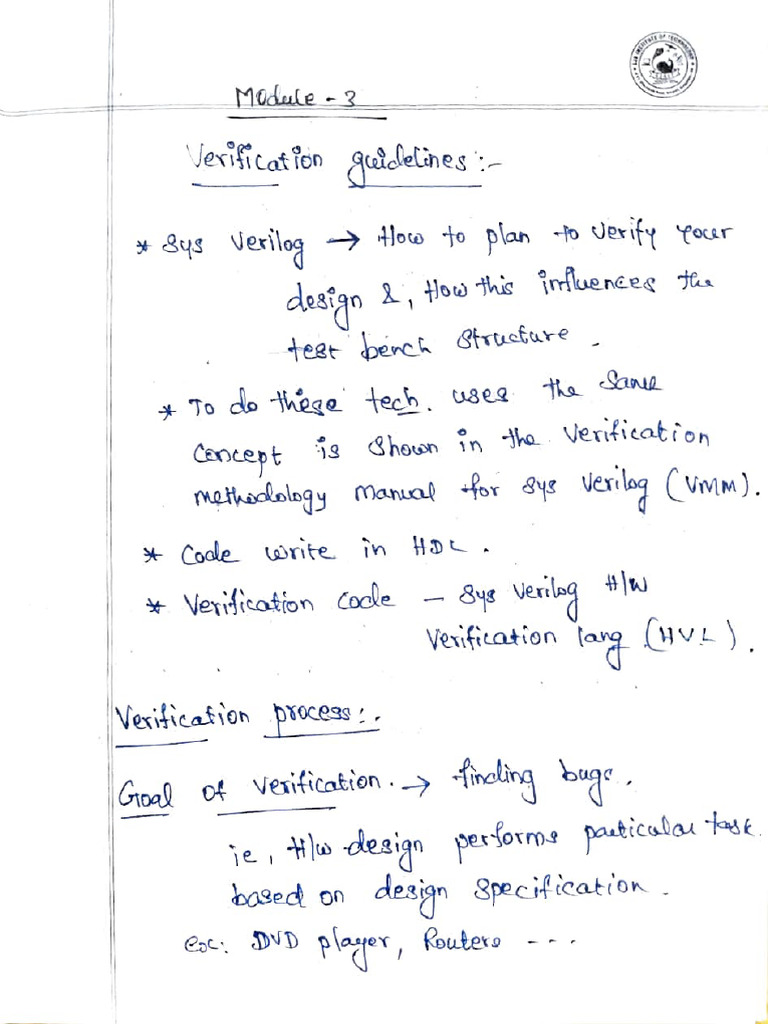 Module - 3
Verification guidelines :-
* Sys Verilog → How to plan to verify your
design &, How this influences the
test bench structure.
* To do these tech. uses the same
concept is shown in the verification
methodology manual for sys verilog (VMM).
* Code write in HDL.
* Verification code — Sys Verilog H/W
Verification lang (HVL).
Verification process :-
Goal of verification. → finding bugs.
ie, H/W design performs particular task
based on design specification.
ex: DVD player, Routers ---